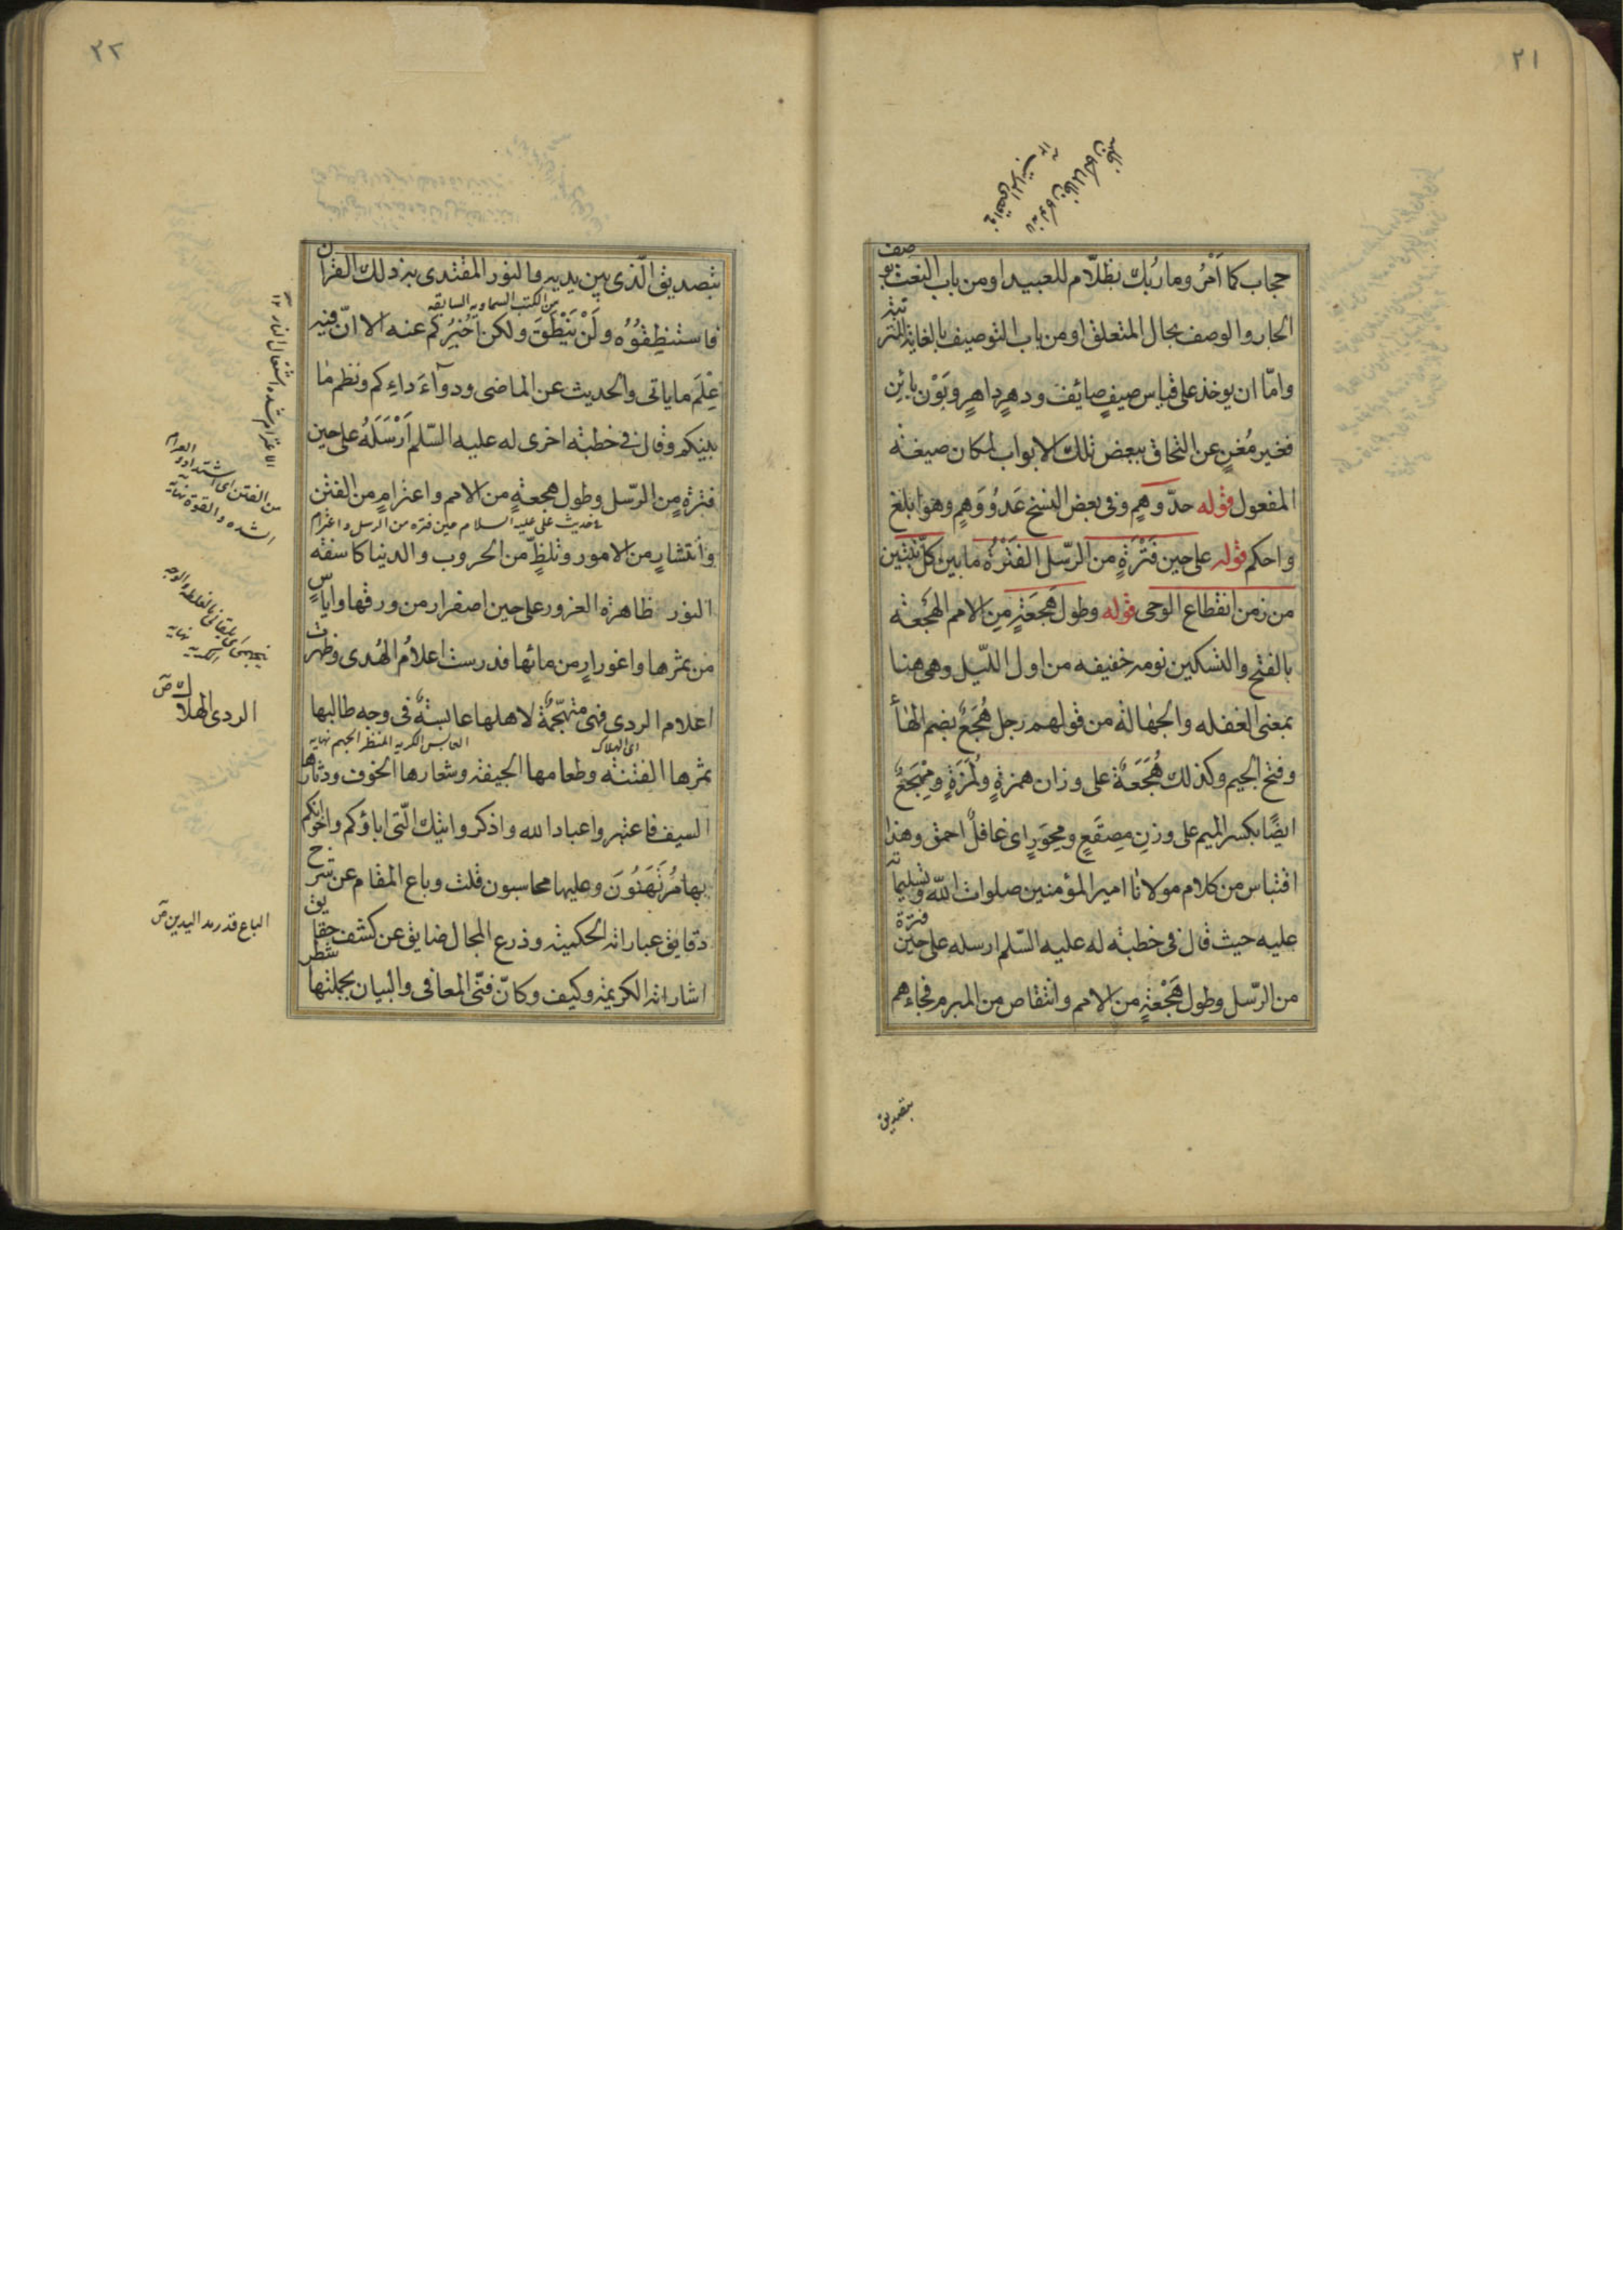 ٢١
حجاب كما أَمْرُ وما ربّك بظلّام للعبيد او من باب النعت بو
صف
الجار والوصف بحال المتعلق او من باب التوصيف بالغاية المتر
تبة
وامّا ان يوخذ على قياس صيفٍ صايف ودهرٍ داهرٍ وبَوْن بائِن
فغير مُغنٍ عن التحاق ببعض تلك الابواب لمكان صيغة
المفعول قوله حدّ وهمٍ وفى بعض النسخ عَدُوُّ وَهمٍ وهو ابلغ
واحكم قوله على حين فَتْرَةٍ من الرّسل الفَتْرَةُ ما بين كلّ نبيّين
من زمن انقطاع الوحى قوله وطول هَجعَةٍ مِن الامم الهَجْعَة
بالفتح والتسكين نومه خفيفه من اول اللّيل وهى هنا
بمعنى الغفله والجهالة من قولهم رجل هُجَعٌ بضم الهاء
وفتح الجيم وكذلك هُجَعَةٌ على وزان همزةٍ ولُمَزَةٍ ومِهْجَعٌ
ايضًا بكسر الميم على وزنِ مِصقَعٍ ومِحْوَرٍ اى غافلٌ احمق وهذا
اقتباس من كلام مولانا امير المؤمنين صلوات اللّه وتسليما
ته
عليه حيث قال فى خطبة له عليه السّلم ارسله على حين
فترة
من الرّسل وطول هَجْعةٍ من الامم وانتقاص من المبرم فجاءهم
بتصديق
٢٢
بتصديق الّذى بين يديه والنور المقتدى به ذلك القرا
ن
من الكتب السماويه السابقه
فاستنطِقُوُه ولَنْ يَنْطَقَ ولكن اُخْبِرُكم عنه الا انّ فيه
عِلْمَ ما ياتى والحديث عن الماضى ودوآءَ داءِكم ونظم ما
بينكم وقال فى خطبة اخرى له عليه السّلم اَرْسَلَهُ على حين
فترةٍ من الرّسل وطول هجعةٍ من الامم واعتزامٍ من الفتن
حديث على عليه السلام حين فتره من الرسل و اعتزام
وانتشارٍ من الامور وتلظٍّ من الحروب والدنيا كاسفة
النور ظاهرة الغرور على حين اصفرار من ورقها واياسٍ
من ثمرها واغورارٍ من مائها قد درست اعلامُ الهُدى وظهر
ت
اعلام الردى فهى متهجّمةٌ لاهلها عابسةٌ فى وجه طالبها
اى الهلاك
العابس الكريه المنظر الجهم نهايه
ثمرها الفتنة وطعامها الجيفة وشعارها الخوف ودثار
ها
السيف فاعتبروا عباد الله واذكروا تيك الّتى اباؤكم واخوانكم
بها مُرْتَهَنُونَ وعليها محاسبون قلت وباع المقام عن شر
ح
دقايق عباراته الحكمية وذرع المجال ضايق عن كشف حقا
يق
اشاراته الكريمة وكيف وكانّ فنّى المعانى والبيان بجملتها
شطر
من الفتن اى اشتداد و العرام
الشده والقوة نهايه
الردى الهلاك ص
الباع قدر مد اليدين ص